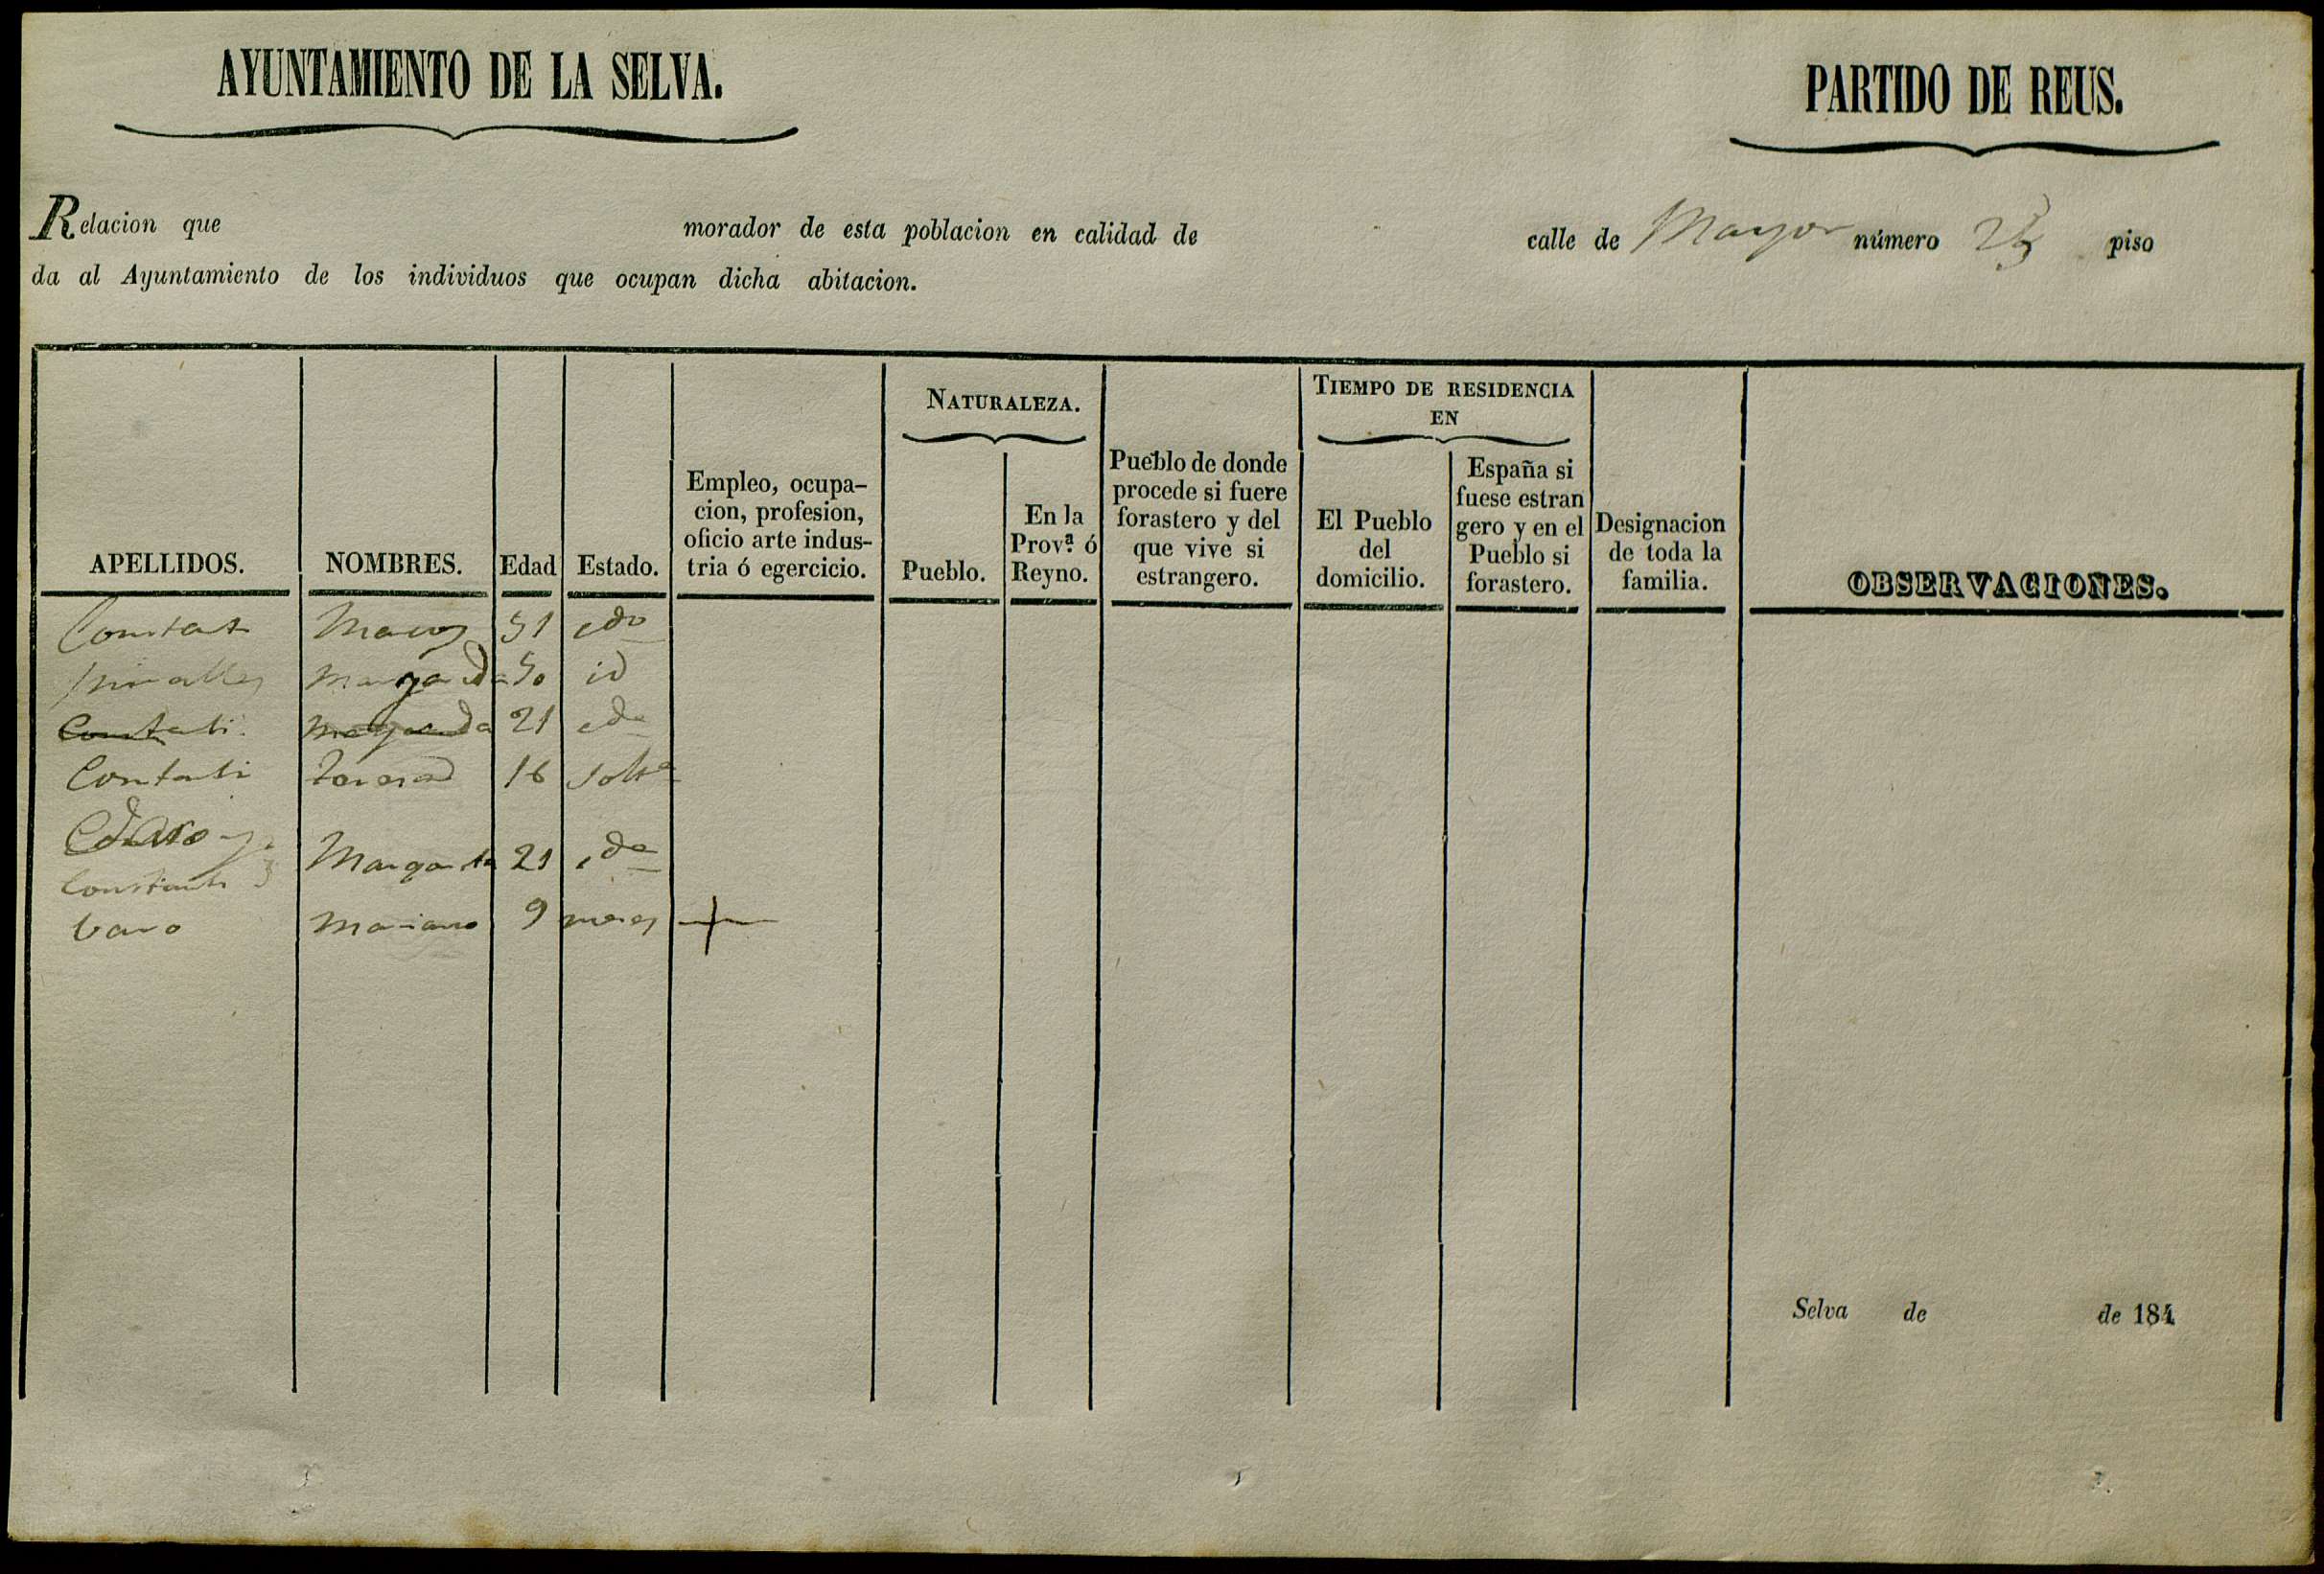 AYUNTAMIENTO DE LA SELVA.
PARTIDO DE REUS.
Relacion que morador de esta poblacion en calidad de calle de Mayor número piso
da al Ayuntamiento de los individuos que ocupan dicha abitacion.
APELLIDOS.
NOMBRES.
Edad
Estado.
Empleo, ocupa-
cion, profesion,
oficio arte indus-
tria ó egercicio.
NATURALEZA.
Pueblo.
En la
Prov.ª ó
Reyno.
Pueblo de donde
procede si fuere
forastero y del
que vive si
estrangero.
TIEMPO DE RESIDENCIA
EN
El Pueblo
del
domicilio.
España si
fuese estran
gero y en el
Pueblo si
forastero.
Designacion
de toda la
familia.
OBSERVACIONES.
51 cdo
Margarida 50 id
Margarida 21 cda
Contanti Teresa 16 solta
Margarita 21 cda
Mariano 9 meses
Selva de de 184